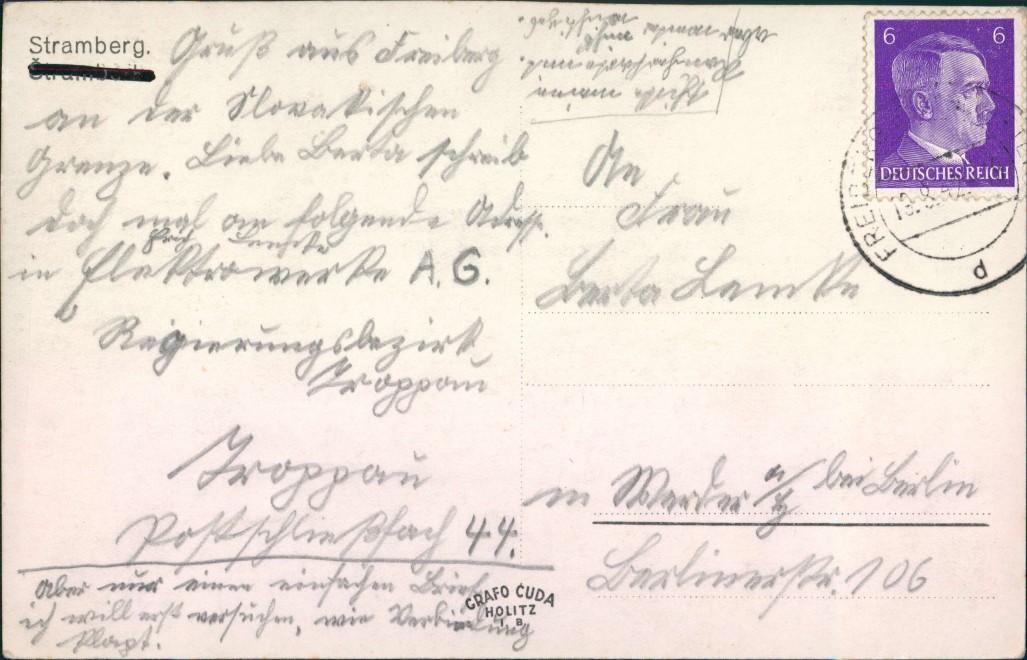 Stramberg.
Gruß aus Freiberg
an der Slovakischen
Grenze. Liebe Berta schreib
doch mal an folgende Adress.
in Elektrowerke A.G.
Regierungsbezirk
Troppau
Troppau
Postschließfach 44.
Aber nur einen einfachen Brief
ich will erst versuchen, wie Verbindung
klapt.
An
Frau
Berta Lemke
in Werder a/H bei Berlin
Berlinerstr. 106
6 6
DEUTSCHES REICH
FREIB
GRAFO ČUDA
HOLITZ
I. B.